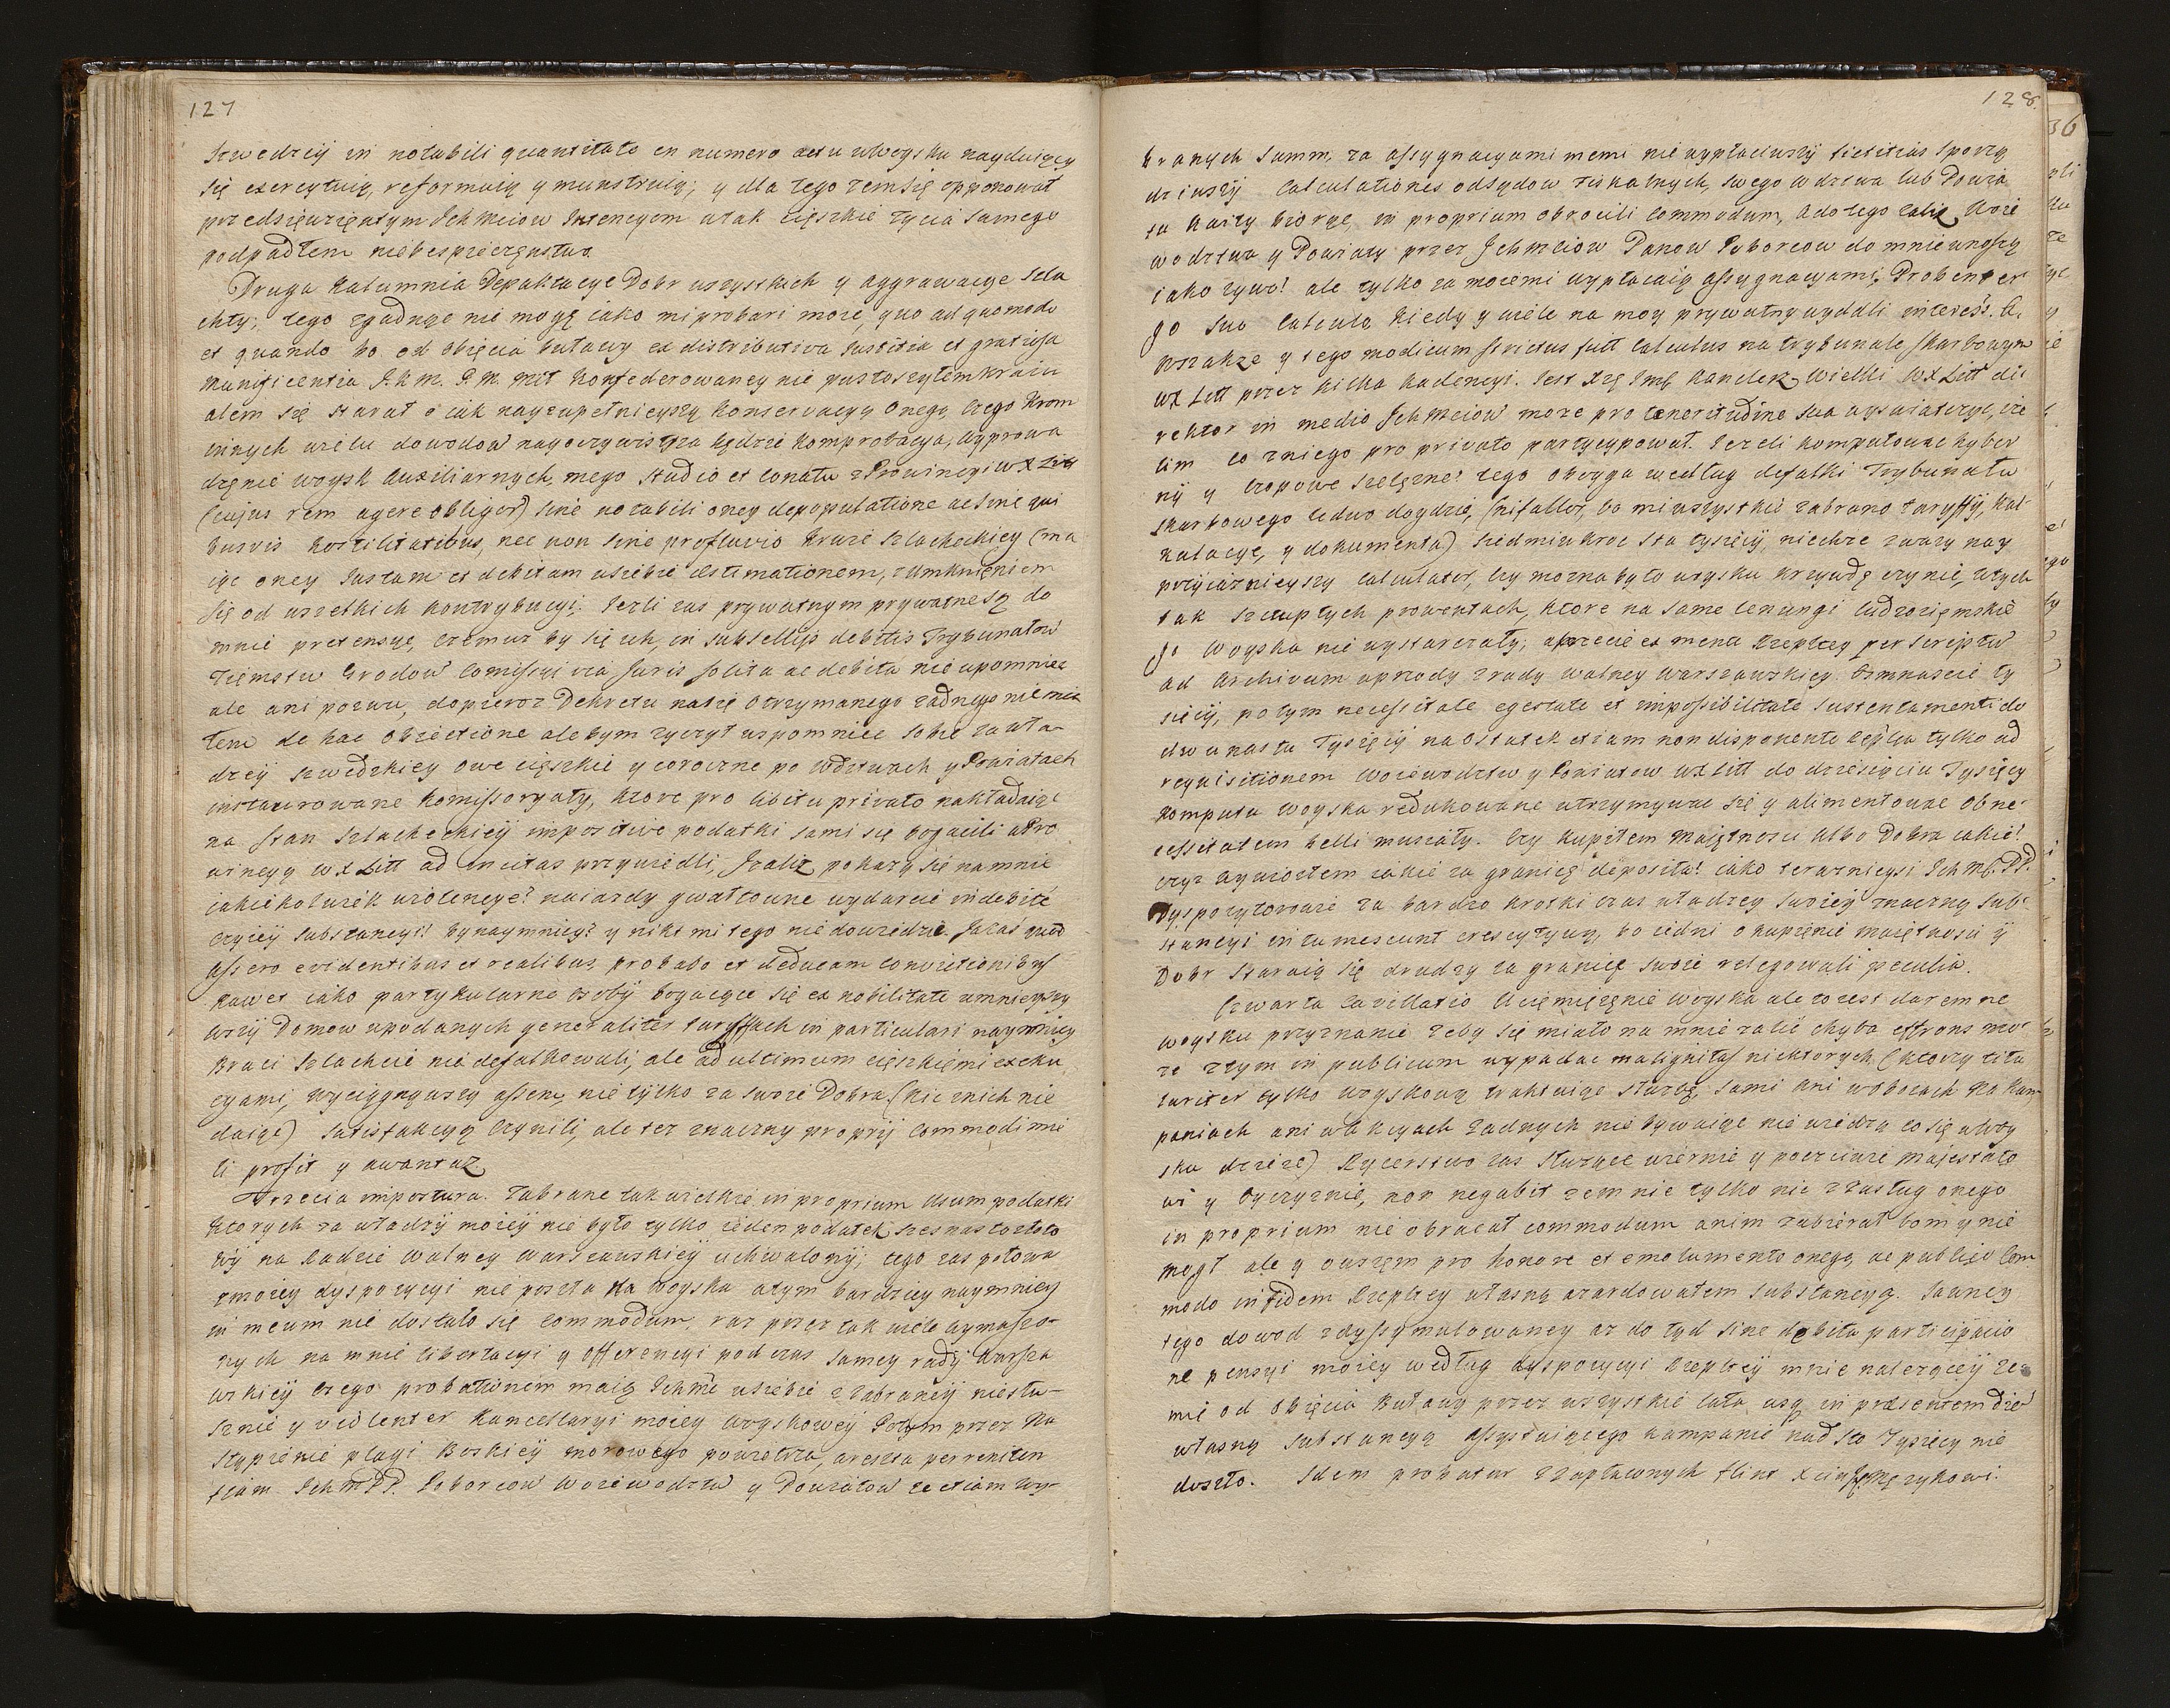 127
Szwedzij in notabili quantitate en numero actu w Woysku nayduięcy
się exercytuią, reformuią y munsztruią; y dla tego żem się opponował
przedsięwziętym Jchmciow Intencyom w tak cięszkie życia samego
podpadłem niebespieczęstwo.
Druga kalumnia Depaktacye Dobr wszystkich y aggrawacye szla
chty; tego zgadnąc nie mogę iako mi probari może, quo ad quomodo
et quando bo od obięcia buławy ex distributiva Justitia et gratiosa
munificentia J.K.M. P.M. Mił konfederowaney nie pustoszyłem kraiu
alem się starał o iak nayzupełnieyszą konserwacyą onego, czego krom
innych wielu dowodow nayoczywistsza będzie komprobacya, wyprowa
dzenie woysk Auxiliarnych, mego studio et conatu z Prowincyi WXLitt
(cujus rem agere obligor) sine notabili oney depopulatione ac sine qui
busvis hostilitatibus, nec non sine profluvio krwie szlacheckiey (ma
iąc oney Justam et debitam u siebie aestimationem, z umknieniem
się od wszelkich kontrybucyi. Jezli zas prywatnym prywatne są do
mnie pretensye, czemuz by się ich, in subsellijs debitis Trybunałow
Ziemstw Grodow Comissyi via Juris solita ac debita nie upomniec
ale ani pozwu, dopieroz Dekretu na się otrzymanego zadnego nie mia
łem de hac obiectione ale bym zyczył wspomniec sobie za wła-
dzy szwedzkiey owe cięszkie y coroczne po Wdztwach y Powiatach
instaurowane komissoryaty, ktore pro libitu privato nakładaiąc
na stan szlacheckiey impositive podatki sami się bogacili a Pro
wincyą WXLitt ad incitas przywiedli, Jzaliz pokazą się na mnie
iakiekolwiek wiolencye? naiazdy gwałtowne wydarcie indebite
czyiey substancyi! bynaymniey? y nikt mi tego nie dowiedzie. Ja zaś quod
assero evidentibus et realibus, probabo et deducam convictionibus
nawet iako partykularne osoby bogacąc się ex nobilitate umnieyszy
wszy Domow w podanych generaliter taryffach in particulari naymniey
Braci szlachcie nie defalkowali, ale ad ultimum cięszkiemi exeku
cyami, wyciągnąwszy assem, nie tylko za swoie Dobra (nic z nich nie
daiąc) satisfakcyą czynili, ale tez znaczny proprij commodi mie
li profit y awantaz
Trzecia impostura. Zabrane tak wielkie in proprium usum podatki
ktorych za władzy moiey nie było tylko ieden podatek szesnastozłoto
wy na Radzie walney warszawskiey uchwalony; tego zas połowa
z moiey dyspozycyi nie poszła na woyska a tym bardziey naymniey
in meum nie dostało się commodum, raz przez tak wiele wymuszo-
nych na mnie libertacyi y offerencyi podczas samey rady Warsza
wskiey czego probationem maią Jchmc u siebie z zabraney niesłu-
sznie y violenter Kancellaryi moiey woyskowey Potym przez na
stąpienie plagi Boskiey morowego powietrza, areszta per reniten
tiam Jchm PP. Poborcow Woiewodztw y Powiatow ze etiam wy-

128
branych Summ, za assygnacyami memi nie wypłaciwszy fictitias sporzą
dziwszy calculationes od sądow Fiskalnych, swego wdztwa lub Powia
tu kwity biorąc, in proprium obrocili commodum, A do tego całiz Woie
wodztwa y Powiaty przez Jchmciow Panow Poborcow do mnie wnoszą
iako zywo! ale tylko za moiemi wypłacaią assygnacyami; Probent er
go suo calculo kiedy y wiele na moy prywatny wydali interess. A.
wszakze y tego modicum strictus fuit calculus na trybunale skarbowym
WX Litt przez kilka kadencyi. Jest Xże Jmć Kanclerz Wielki WXLitt di
rektor in medio Jchmciow moze pro teneritudine sua wyswiatczyc, ie
żlim co z niego pro privato partycypował. Jezeli komputowac hyber
ny y czopowe szelęzne! tego oboyga według defalki Trybunału
skarbowego ledwo doydzie, (ni fallor, bo mi wszystkie zabrano taryffy, kal
kulacye, y dokumenta) siedmiukroc sta tysięcy, niechze zwazy nay
przyiaznieyszy calculator, czy mozna było woysku krzywdę czynic, w tych
tak szczupłych prowentach, ktore na same lenungi cudzoziemskie
go Woyska nie wystarczały; a przecie ex mente Rzepltey per scriptu
ad Archivum a przody z rady walney Warszawskiey. Osmnascie ty
sięcy, potym necessitate egestate et impossibilitate sustentamenti do
dwunastu Tysięcy na ostatek etiam non disponente Rzeplta tylko ad
requisitionem Woiewodztw y Powiatow WXLitt do dziesięciu Tysięcy
komputu woyska redukowane utrzymywac się y alimentowac ob ne-
cessitatem belli musiały. Czy kupiłem maiętnosci albo Dobra iakie!
czyz wywiozłem iakie za granicę deposita! iako terazneysi Jchmć PP.
Dyspozytorowie za bardzo krotki czas władzey swoiey znaczną sub-
stancyi intumescunt crescytywą, bo iedni o kupienie maiętnosci y
Dobr staraią się drudzy za granicę swoie relegowali peculia.
Czwarta Cavillatio Uciemięzęnie woyska ale to iest daremne
woysku przyznanie zeby się miało na mnie zalic chyba effrons mo-
ze z tym in publicum wypadac malignitas niektorych (ktorzy titu
lariter tylko woyskową traktuiąc słuzbę, sami ani w obozach na kam
paniach ani w akcyach zadnych nie bywaiąc nie wiedzą co się w woy
sku dzieie) Rycerstwo zas słuzące wiernie y poczciwie Majestato
wi y Oyczyznie, non negabit zem nie tylko nic z zasług onego
in proprium nie obracał commodum anim zabierał bom y nie
mogł ale y owszem pro honore et emolumento onego, ac publico Com
modo in fidem Rzepltey własną azardowałem substancyą. Jawney
tego dowod z dyssymulowaney az do tąd sine debita participatio
ne pensyi moiey według dyspozycyi Rzepltey mnie nalezącey ze
mie od obięcia Buławy przez wszystkie lata, usq in praesentem die
własną substancyą assystuiącego kampanie nad sto Tysięcy nie
doszło. Idem probatur z zapłaconych flint Xciu